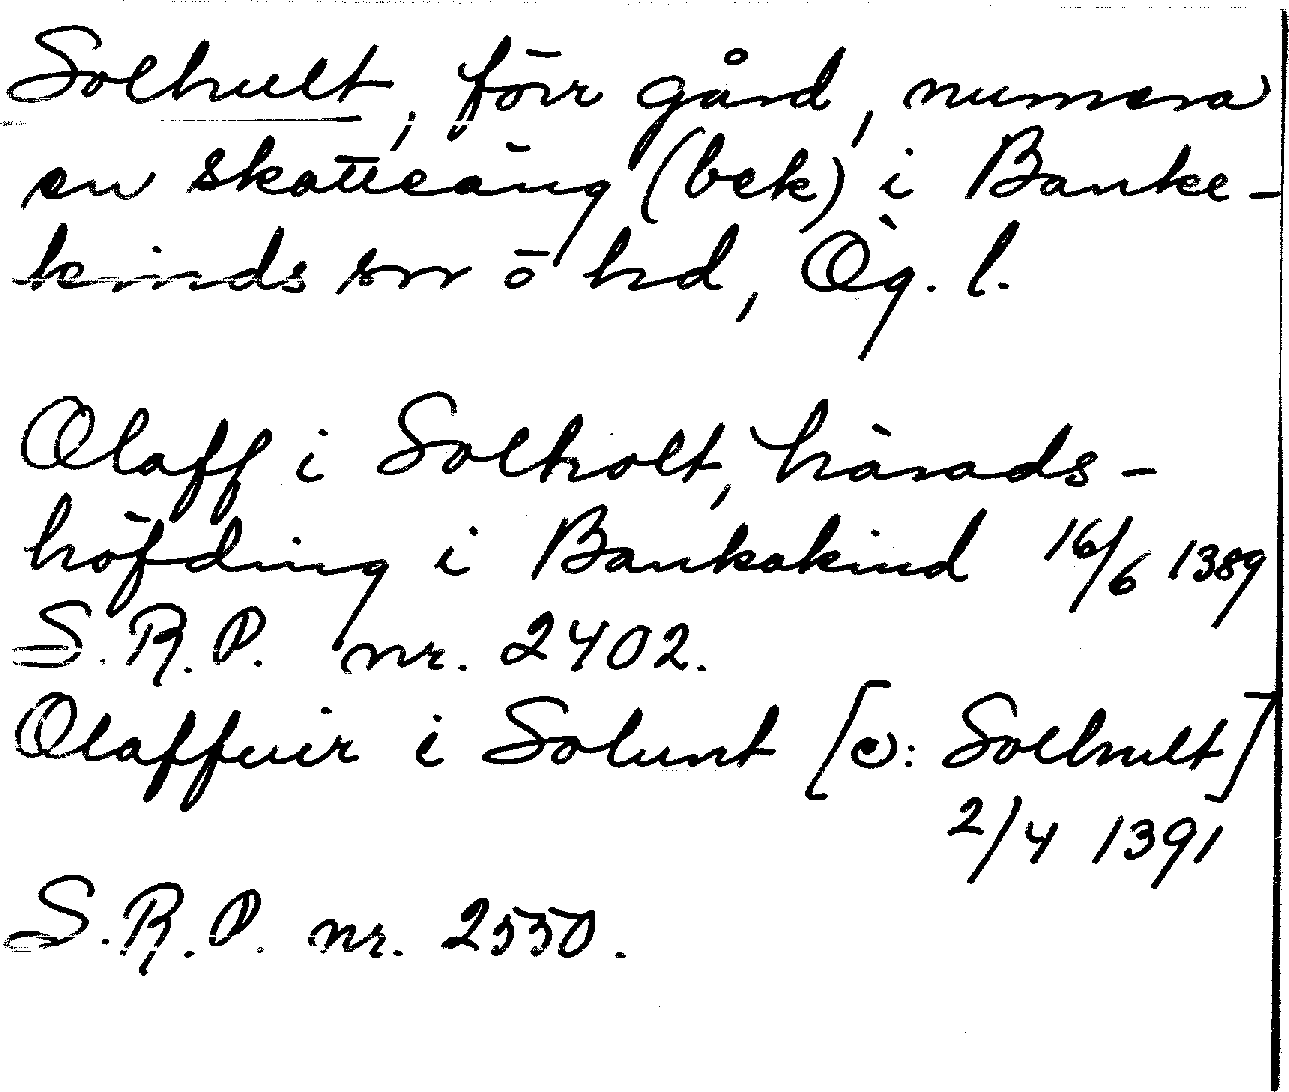 Solhult, förr gård, numera
en skatteäng (bek) i Banke-
kinds sn o hd, Ög. l.
Olaff i Solholt, härads-
höfding i Bankakind 16/6 1389
S.R.P. nr. 2402.
Olaffuir i Solunt [ɔ: Solhult]
2/4 1391
S.R.P. nr. 2550.